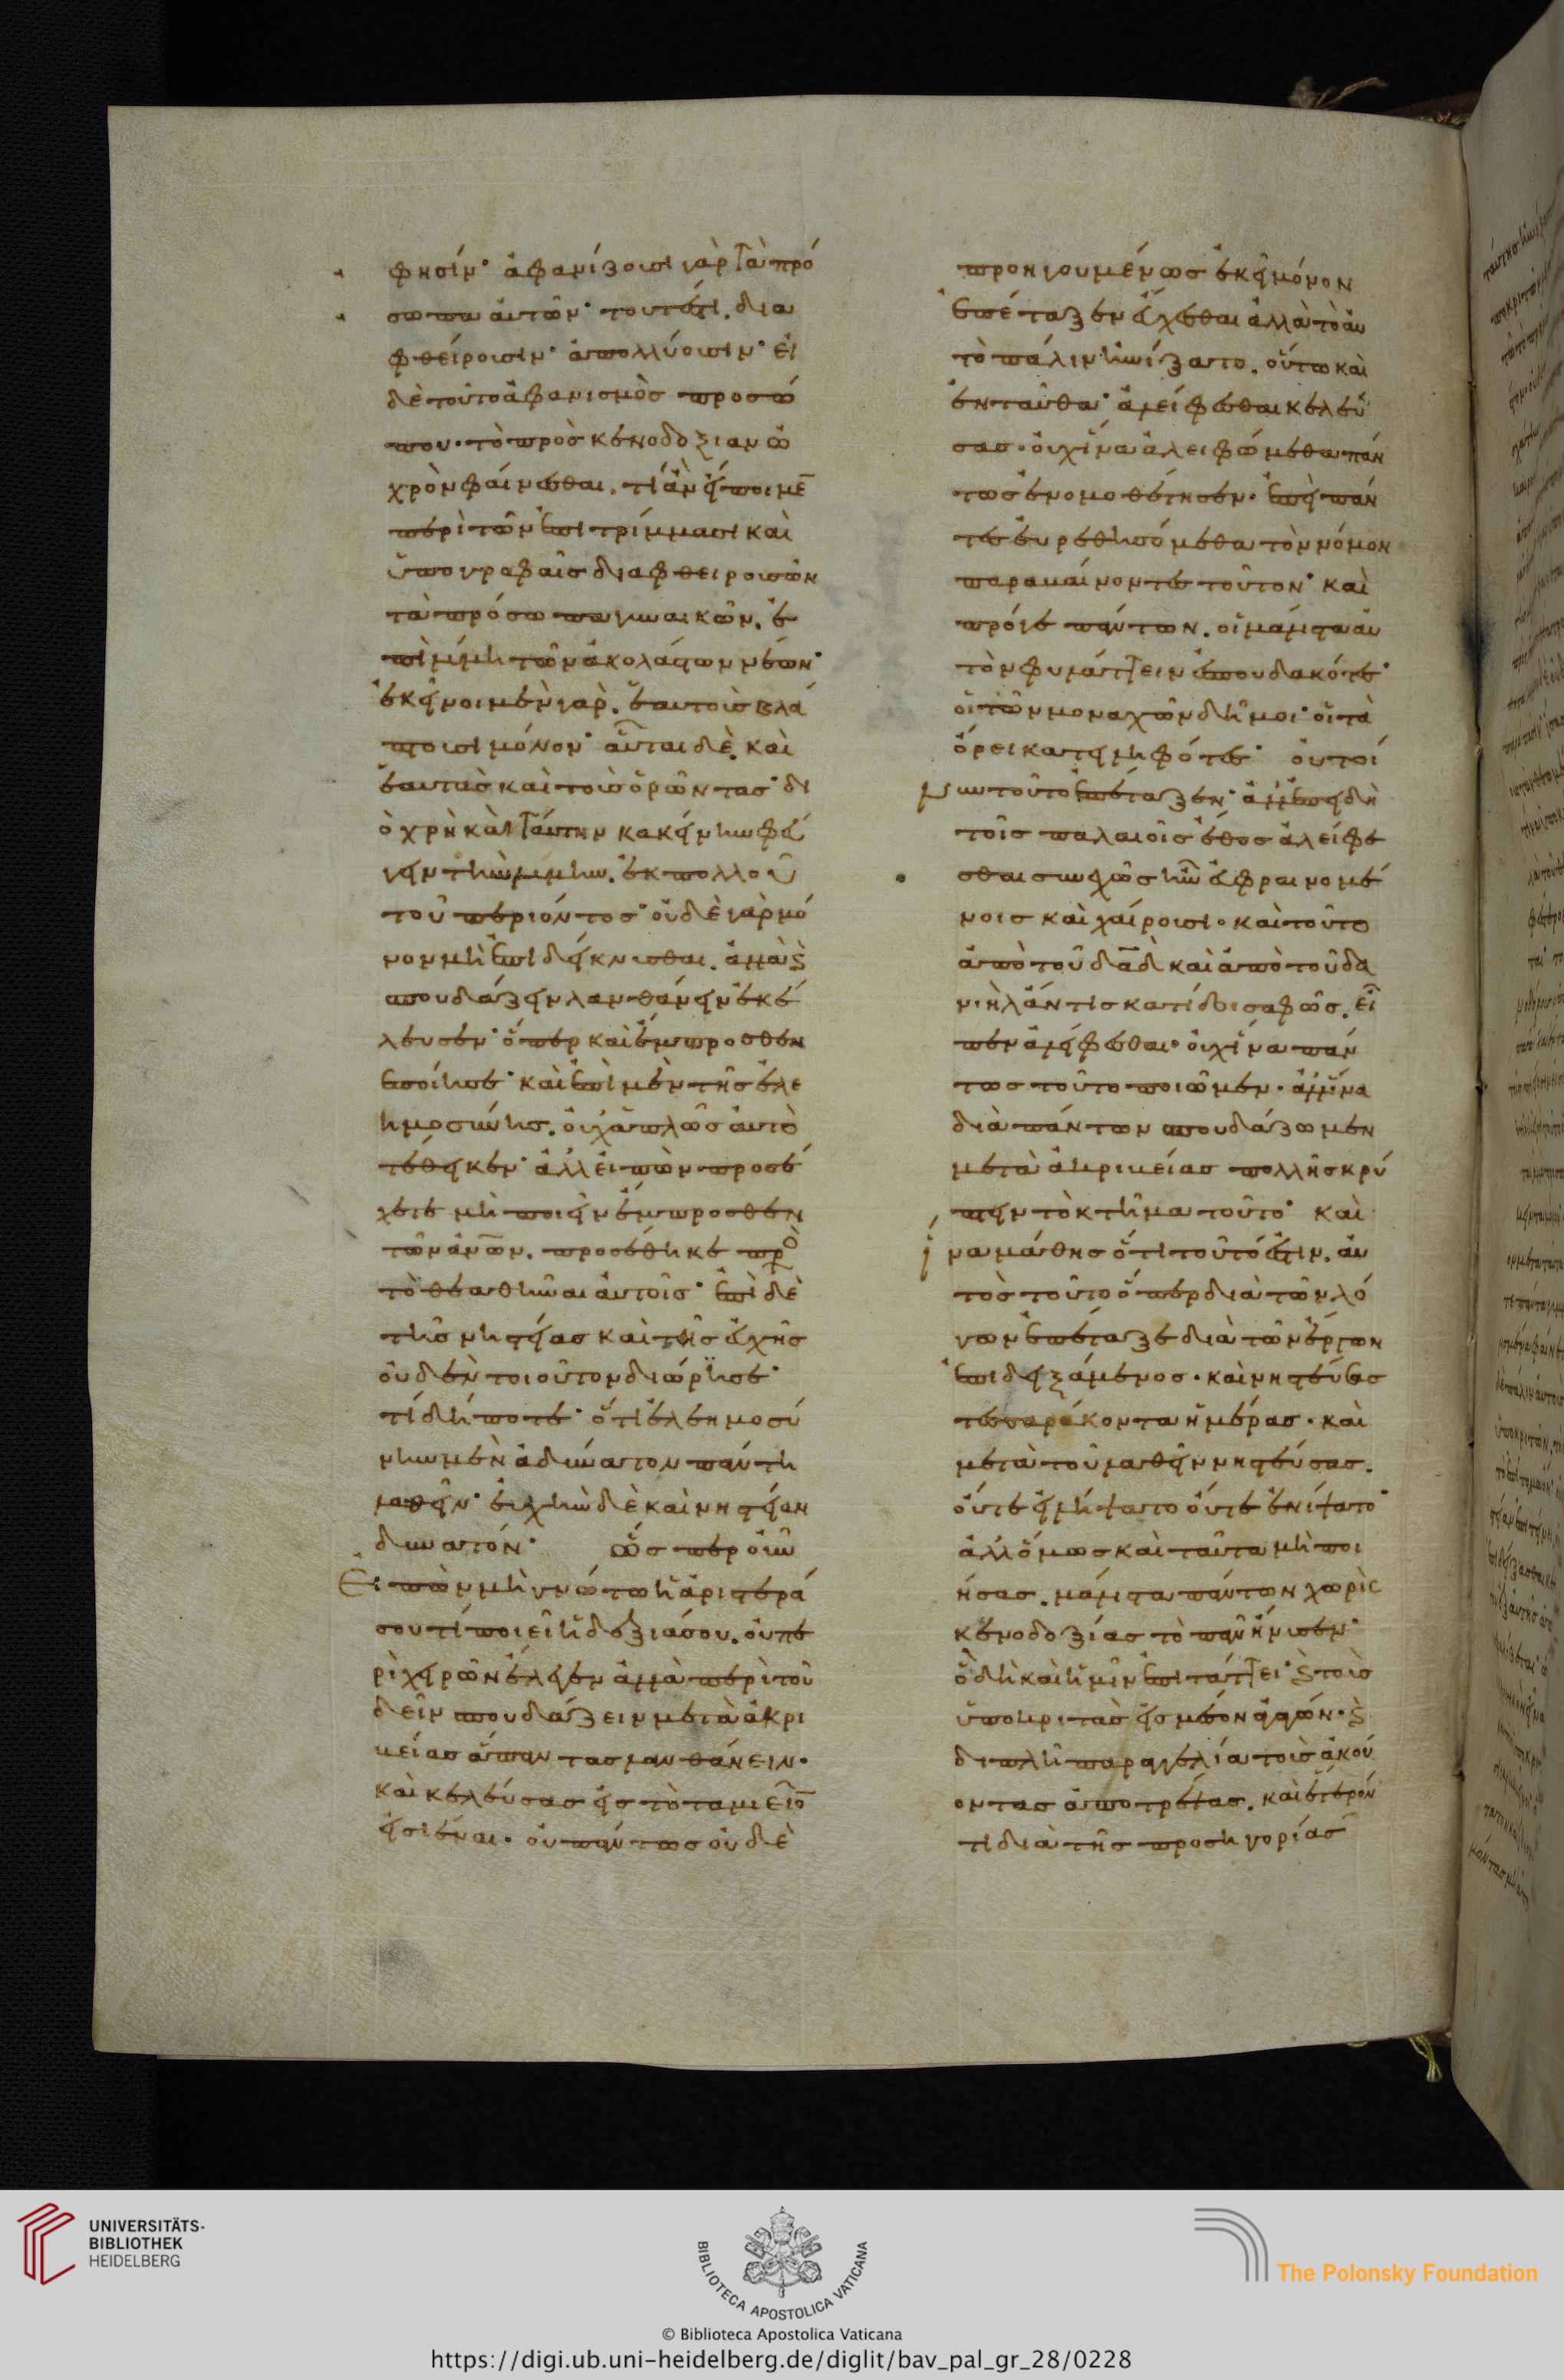 φησίν· ἀφανίζουσι γὰρ τὰ πρό
σωπα αὐτῶν· τουτέστι, δια
φθείρουσιν· ἀπολλύουσιν· εἰ
δὲ τοῦτο ἀφανισμὸς προσώ
που· τὸ πρὸς κενοδοξίαν ὠ
χρὸν φαίνεσθαι, τί ἂν εἴποιμε̅
περὶ τῶν ἐπιτρίμμασι καὶ
ὑπογραφαῖς διαφθειρουσῶν
τὰ πρόσωπα γυναικῶν, ἐ
πὶ λύμῃ τῶν ἀκολάστων νέων·
ἐκεῖνοι μὲν γὰρ, ἑαυτοὺς βλά
πτουσι μόνον· αὗται δὲ, καὶ
ἑαυτὰς καὶ τοὺς ὁρῶντας· δι
ὸ χρὴ κἀκείνην φεύ
γειν τὴν λύμην, ἐκ πολλοῦ
τοῦ περιόντος· οὐδὲ γὰρ μό
νον μὴ ἐπιδείκνυσθαι, ἀλλὰ ϗ
σπουδάζειν λανθάνειν ἐκέ
λευσεν· ὅπερ καὶ ἔμπροσθεν
ἐποίησε· καὶ ἐπὶ μὲν τῆς ἐλε
ημοσύνης, οὐχ ἁπλῶς αὐτὸ
τέθεικεν· ἀλλ' εἰπὼν προσέ
χετε μὴ ποιεῖν ἔμπροσθεν
τῶν ἀν̅ων, προσέθηκε πρὸ
τὸ θεαθῆναι αὐτοῖς· ἐπὶ δὲ
τῆς νηστείας καὶ τῆς εὐχῆς
οὐδὲν τοιοῦτον διώρισε·
τί δήποτε· ὅτι ἐλεημοσύ
νην μὲν ἀδύνατον πάντη
λαθεῖν· εὐχὴν δὲ καὶ νηστείαν
δυνατόν· ὥσπερ οὖν
εἰπὼν μὴ γνώτω ἡ ἀριστερά
σου τί ποιεῖ ἡ δεξιά σου, οὐ πε
ρὶ χειρῶν ἔλεγεν ἀλλὰ περὶ τοῦ
δεῖν σπουδάζειν μετὰ ἀκρι
βείας ἅπαντας λανθάνειν·
καὶ κελεύσας εἰς τὸ ταμιεῖο̅
εἰσιέναι· οὐ πάντως οὐδὲ
προηγουμένως ἐκεῖ μόνον
ἐπέταξεν εὔχεσθαι ἀλλὰ τὸ αὐ
τὸ πάλιν ᾐνίξατο, οὕτω καὶ
ἐνταῦθα· ἀλείφεσθαι κελεύ
σας· οὐχ ἵνα ἀλειφώμεθα πάν
τως ἐνομοθέτησεν· ἐπεὶ πάν
τες εὑρεθησόμεθα τὸν νόμον
παραβαίνοντες τοῦτον· καὶ
πρό γε πάντων, οἱ μάλιστα αὐ
τὸν φυλάττειν ἐσπουδακότες·
οἱ τῶν μοναχῶν δῆμοι· οἱ τὰ
ὄρει κατειληφότες· οὐ τοί
νυν τοῦτο ἐπέταξεν· ἀλλ' ἐπειδὴ
τοῖς παλαιοῖς ἔθος ἀλείφε
σθαι συνεχῶς ἦν εὐφραινομέ
νοις καὶ χαίρουσι· καὶ τοῦτο
ἀπὸ τοῦ δα̅δ καὶ ἀπὸ τοῦ δα
νιὴλ ἄν τις κατίδοι σαφῶς, εἶ
πεν ἀλείφεσθαι· οὐχ ἵνα πάν
τως τοῦτο ποιῶμεν· ἀλλ' ἵνα
διὰ πάντων σπουδάζωμεν
μετὰ ἀκριβείας πολλῆς κρύ
πτειν τὸ κτῆμα τοῦτο· καὶ
ἵνα μάθῃς ὅτι τοῦτό ἐστιν, αὐ
τὸς τοῦτο ὅπερ διὰ τῶν λό
γων ἐπέταξε διὰ τῶν ἔργων
ἐπιδειξάμενος· καὶ νηστεύσας
τεσσαράκοντα ἡμέρας· καὶ
μετὰ τοῦ λαθεῖν νηστεύσας,
οὔτε ἠλείψατο οὔτε ἐνίψατο·
ἀλλ' ὅμως καὶ ταῦτα μὴ ποι
ήσας, μάλιστα πάντων χωρὶς
κενοδοξίας τὸ πᾶν ἤνυσεν·
ὃ δὴ καὶ ἡμῖν ἐπιτάττει· ϗ τοὺς
ὑποκριτὰς εἰς μέσον ἀγαγών· ϗ
διπλῇ παραγγελίᾳ τοὺς ἀκού
οντας ἀποτρέψας, καὶ ἕτερόν
τι διὰ τῆς προσηγορίας
UNIVERSITÄTS-
BIBLIOTHEK
HEIDELBERG
BIBLIOTECA APOSTOLICA VATICANA
The Polonsky Foundation
© Biblioteca Apostolica Vaticana
https://digi.ub.uni-heidelberg.de/diglit/bav_pal_gr_28/0228